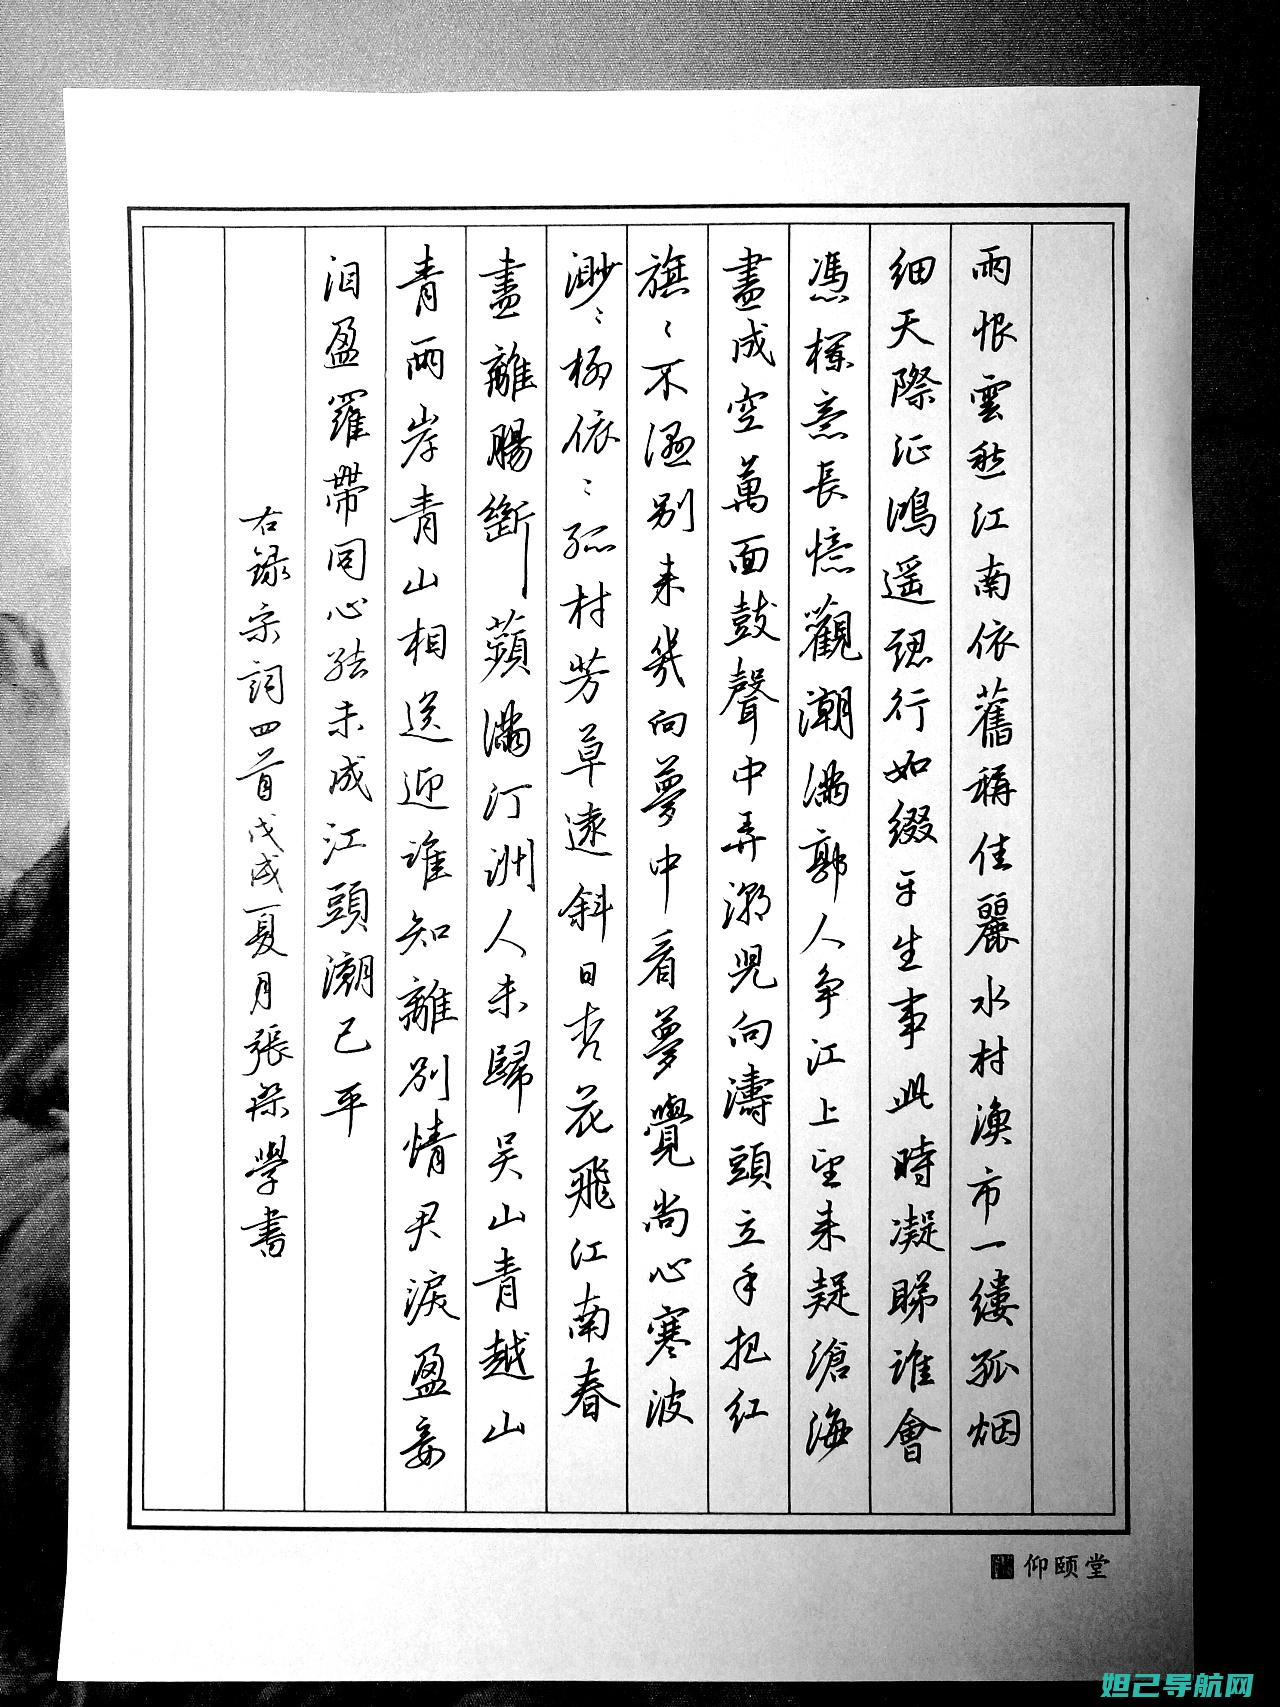 雨恨雲愁江南依舊稱佳麗水村漁市一縷孤烟
細天際征鴻遥認行如綴平生事此時凝睇誰會
憑欄意長憶觀潮滿郭人争江上望来疑滄海
盡成空萬面鼓聲中弄潮児向濤頭立手把紅
旗〻不濕别来幾向夢中看夢覺尚心寒波
渺〻楊依〻孤村芳草遠斜日杏花飛江南春
盡離腸斷蘋滿汀洲人未歸吴山青越山
青兩岸青山相送迎誰知離别情君淚盈妾
泪盈羅帶同心結未成江頭潮已平
右録宋詞四首戊戌夏月張學書
仰颐堂
妲己导航网